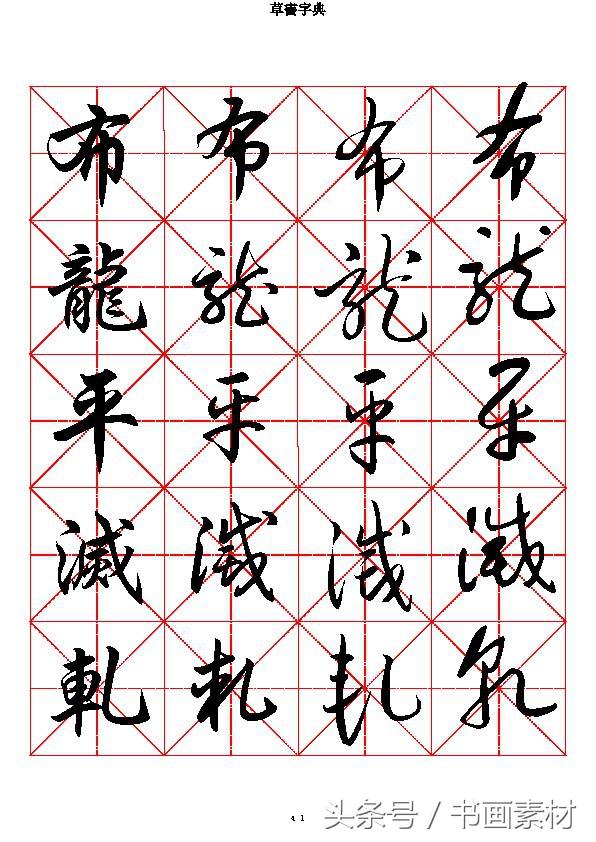 草書字典
布 布 布 布
龍 龍 龍 龍
平 平 平 平
滅 滅 滅 滅
軋 軋 軋 軋
41
头条号 / 书画素材